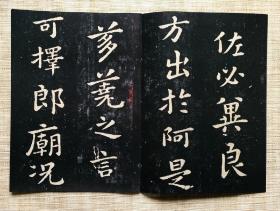 佐必冀良
方出於阿是
芻蕘之言
可擇郎廟况